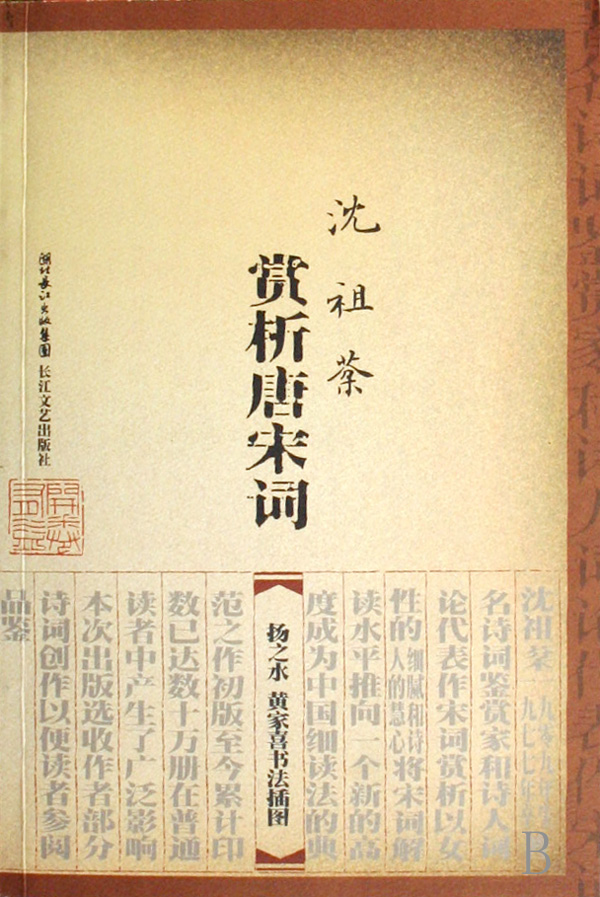 沈祖棻
赏析唐宋词
湖北长江出版集团 长江文艺出版社
开卷有益
扬之水 黄家喜书法插图
名诗词鉴赏家和诗人词
论代表作宋词赏析以女
性的细腻和诗人的慧心将宋词解
读水平推向一个新的高
度成为中国细读法的典
范之作初版至今累计印
数已达数十万册在普通
读者中产生了广泛影响
本次出版选收作者部分
诗词创作以便读者参阅
品鉴
B